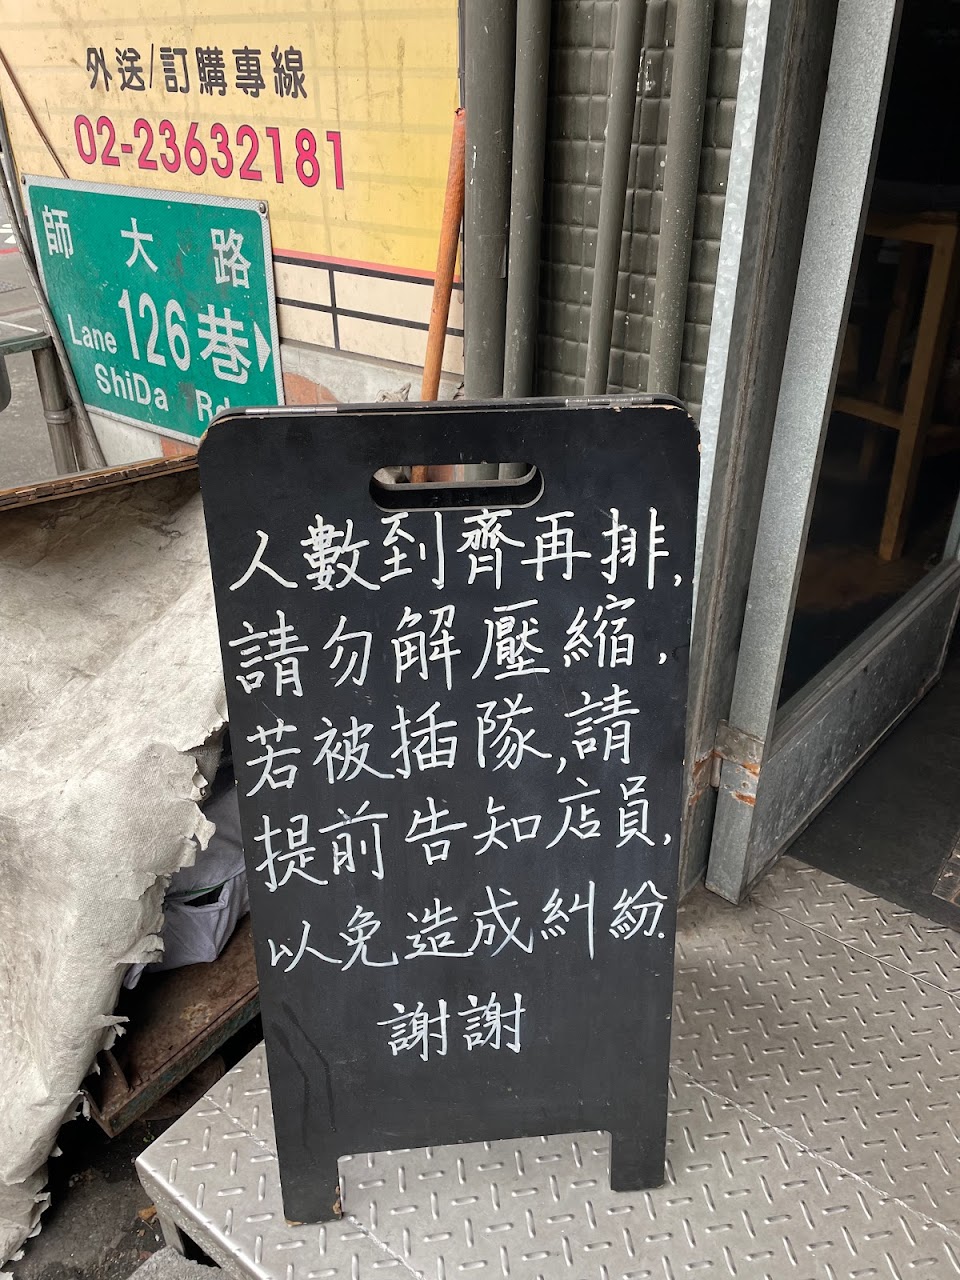 外送/訂購專線
02-23632181
師大路
Lane 126巷
ShiDa Rd
人數到齊再排,
請勿解壓縮,
若被插隊,請
提前告知店員,
以免造成糾紛.
謝謝